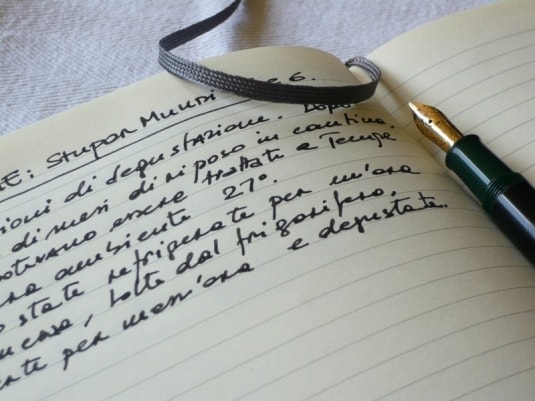 E: Stupor Mundi 6.
ioni di degustazione. Dopo
di mesi di riposo in cantina.
otevano essere trattate a Tempe
ra ambiente 27°.
o state refrigerate per un'ora
, tolte dal frigorifero,
nte per mezz'ora e degustate.